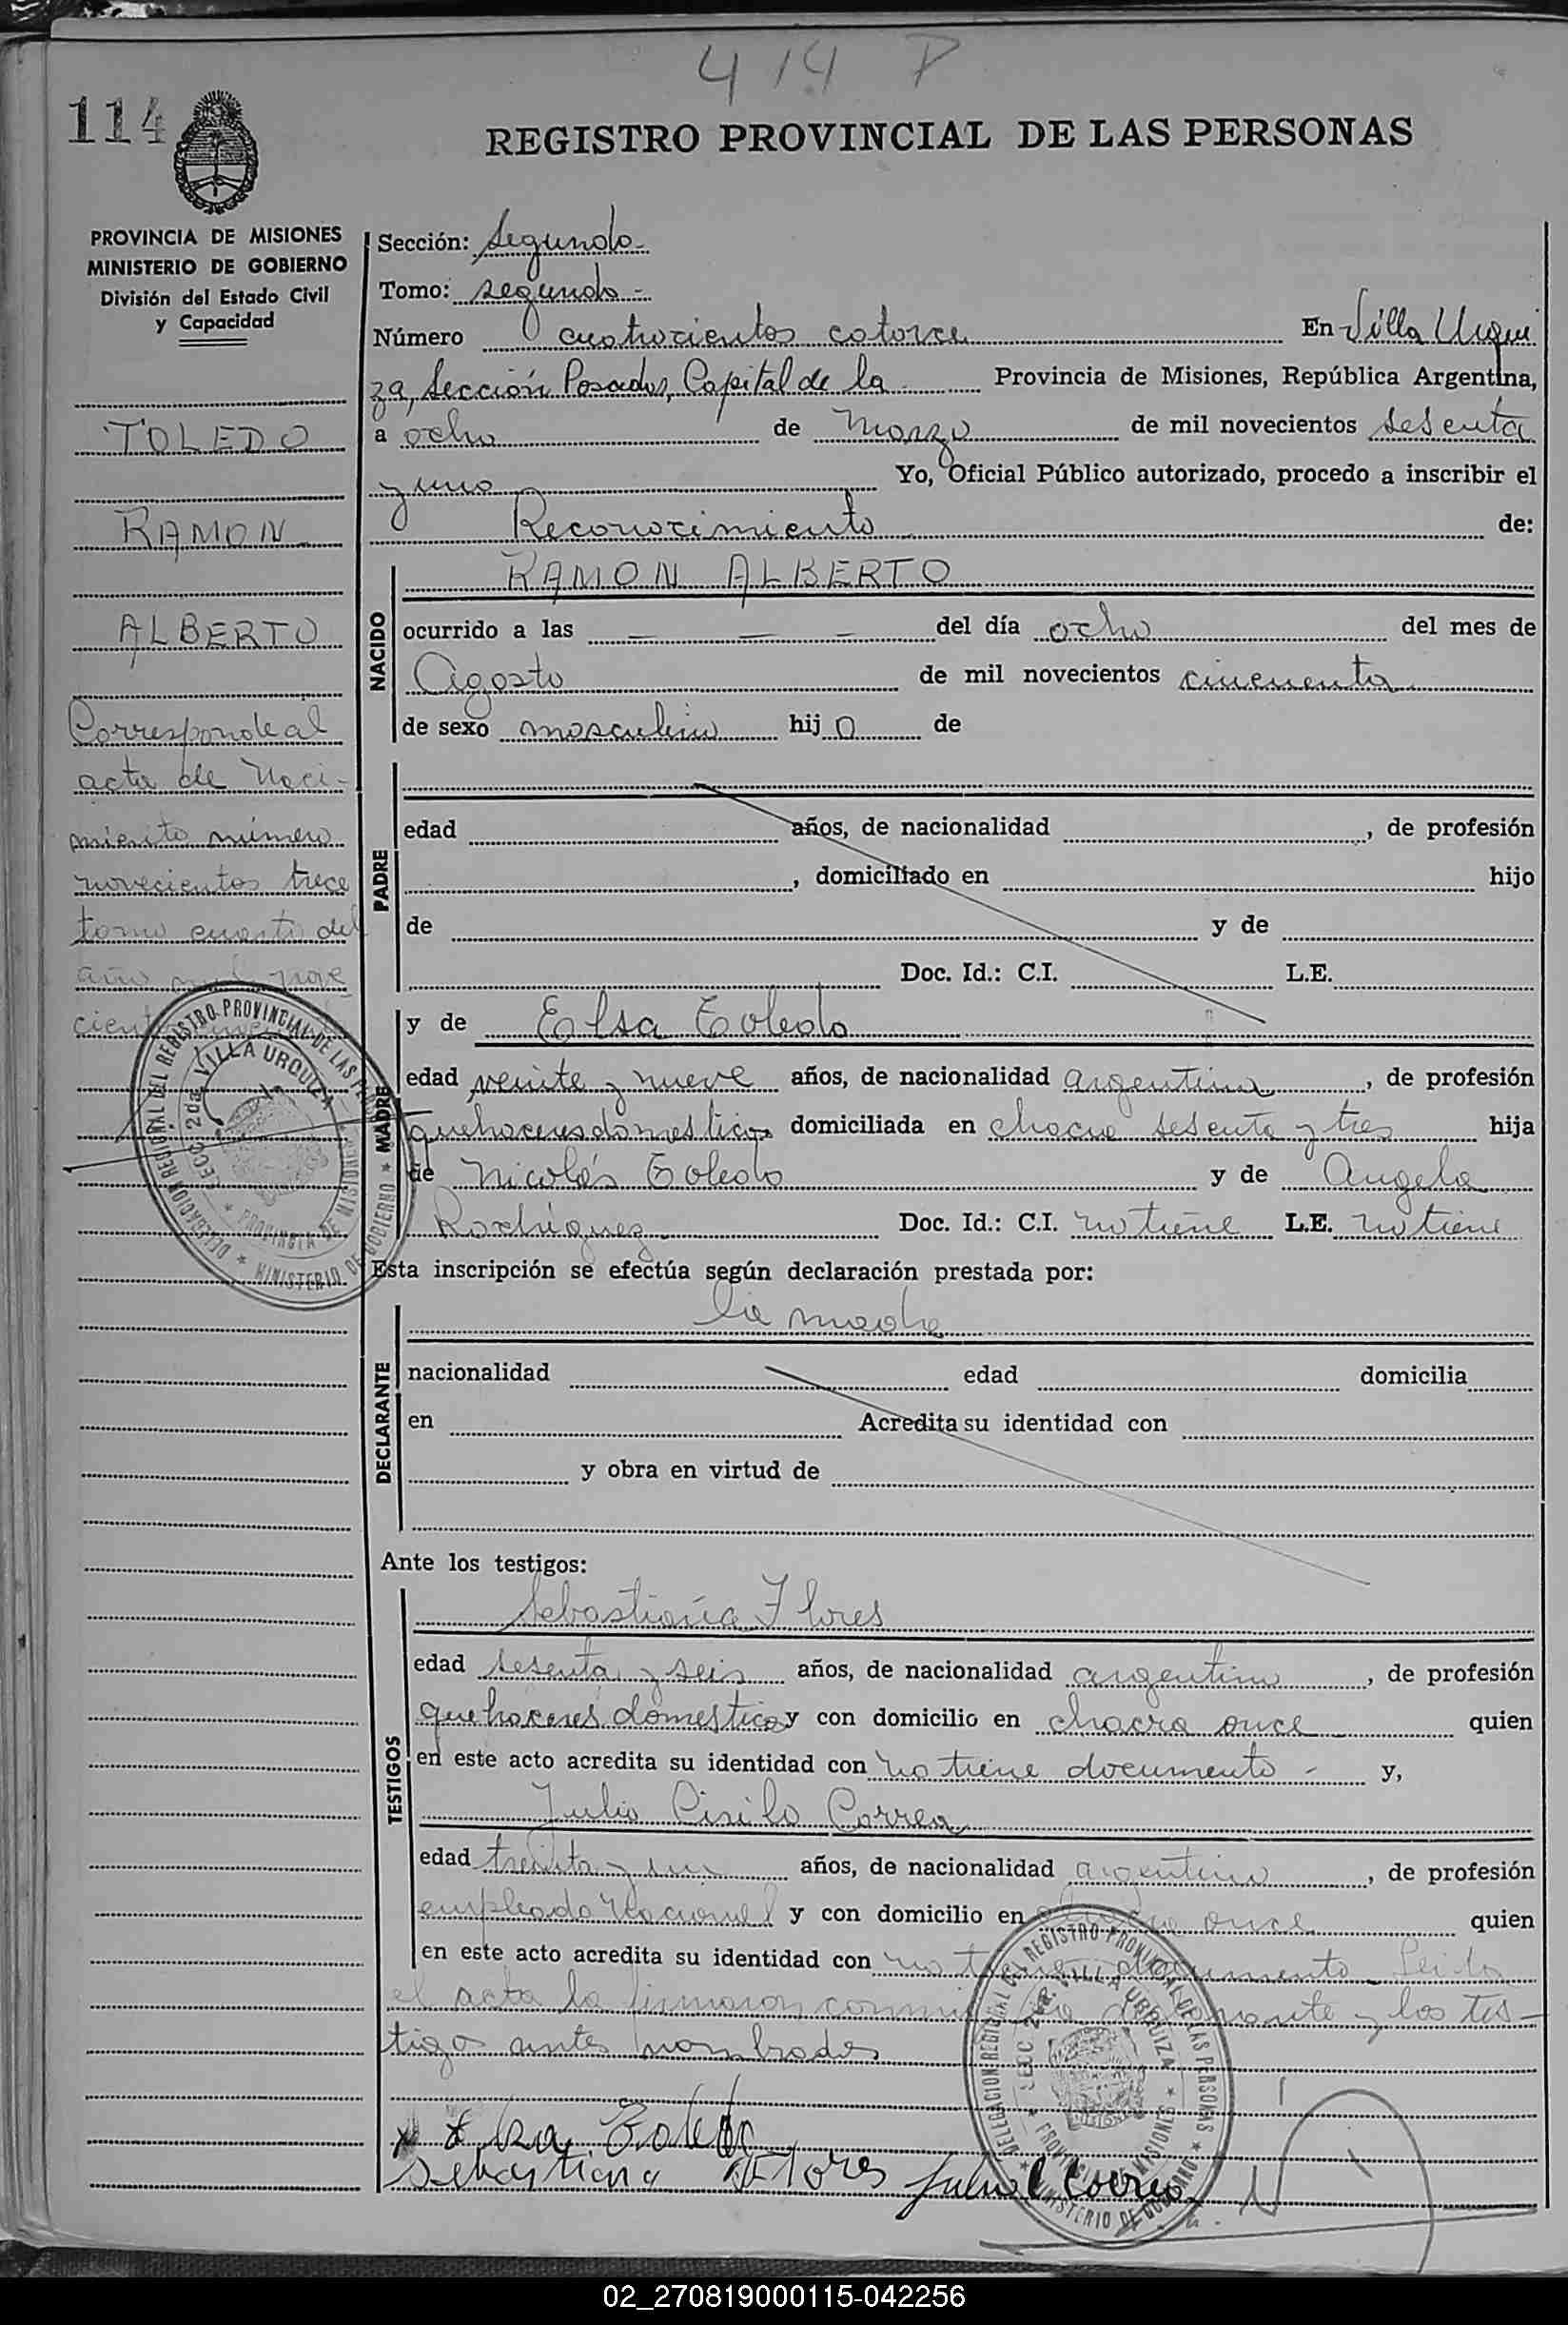 414 P
114
REGISTRO PROVINCIAL DE LAS PERSONAS
PROVINCIA DE MISIONES
MINISTERIO DE GOBIERNO
División del Estado Civil
y Capacidad
TOLEDO
RAMON
ALBERTO
Corresponde al
acta de Naci-
miento número
novecientos trece
tomo cuarto del
año mil nove
Sección: Segundo-
Tomo: segundo-
Número cuatrocientos catorce En Villa Urqui
za, Sección Posadas, Capital de la Provincia de Misiones, República Argentina,
a ocho de Marzo de mil novecientos sesenta
y uno Yo, Oficial Público autorizado, procedo a inscribir el
Reconocimiento de:
NACIDO
RAMON ALBERTO
ocurrido a las — — — del día ocho del mes de
Agosto de mil novecientos cincuenta
de sexo masculino hij o de
PADRE
edad años, de nacionalidad , de profesión
, domiciliado en hijo
de y de
Doc. Id.: C.I. L.E.
MADRE
y de Elsa Toledo
edad veinte y nueve años, de nacionalidad argentina , de profesión
quehaceres domesticos domiciliada en chacra sesenta y tres hija
de Nicolás Toledo y de Angela
Rodriguez Doc. Id.: C.I. no tiene L.E. no tiene
Esta inscripción se efectúa según declaración prestada por:
la madre
DECLARANTE
nacionalidad edad domicilia
en Acredita su identidad con
y obra en virtud de
Ante los testigos:
TESTIGOS
Sebastiana Flores
edad sesenta y seis años, de nacionalidad argentina , de profesión
quehaceres domesticos y con domicilio en chacra once quien
en este acto acredita su identidad con no tiene documento - y,
Julio Cirilo Correa
edad treinta y un años, de nacionalidad argentino , de profesión
empleado Nacional y con domicilio en chacra once quien
en este acto acredita su identidad con no tiene documento Leida
el acta la firmaron conmigo la declarante y los tes-
tigos antes nombrados
Elsa Toledo
Sebastiana Flores Julio C Correa
DELEGACION REGIONAL DEL REGISTRO PROVINCIAL DE LAS PERSONAS
SECC 2da. VILLA URQUIZA
PROVINCIA DE MISIONES
MINISTERIO DE GOBIERNO
DELEGACION REGIONAL DEL REGISTRO PROVINCIAL DE LAS PERSONAS
SECC 2da. VILLA URQUIZA
PROVINCIA DE MISIONES
MINISTERIO DE GOBIERNO
02_270819000115-042256